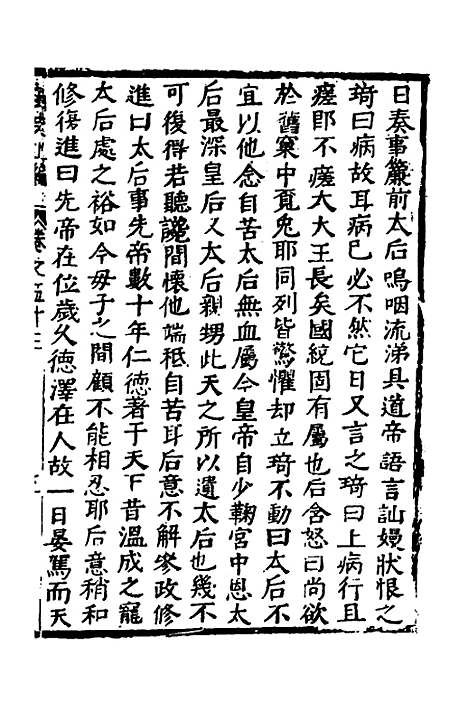 日奏事簾前太后嗚咽流涕具道帝語言訕嫚狀恨之
琦曰病故耳病已必不然它日又言之琦曰上病行且
瘥卽不瘥大大王長矣國統固有屬也后含怒曰尚欲
於舊窠中覓兔耶同列皆驚懼却立琦不動曰太后不
宜以他念自苦太后無血屬今皇帝自少鞠宮中恩太
后最深皇后又太后親甥此天之所以遺太后也幾不
可復得若聽讒間懷他端秪自苦耳后意不解參政修
進曰太后事先帝數十年仁德著于天下昔溫成之寵
太后處之裕如今母子之間顧不能相忍耶后意稍和
修復進曰先帝在位歲久德澤在人故一日晏駕而天
卷之五十三